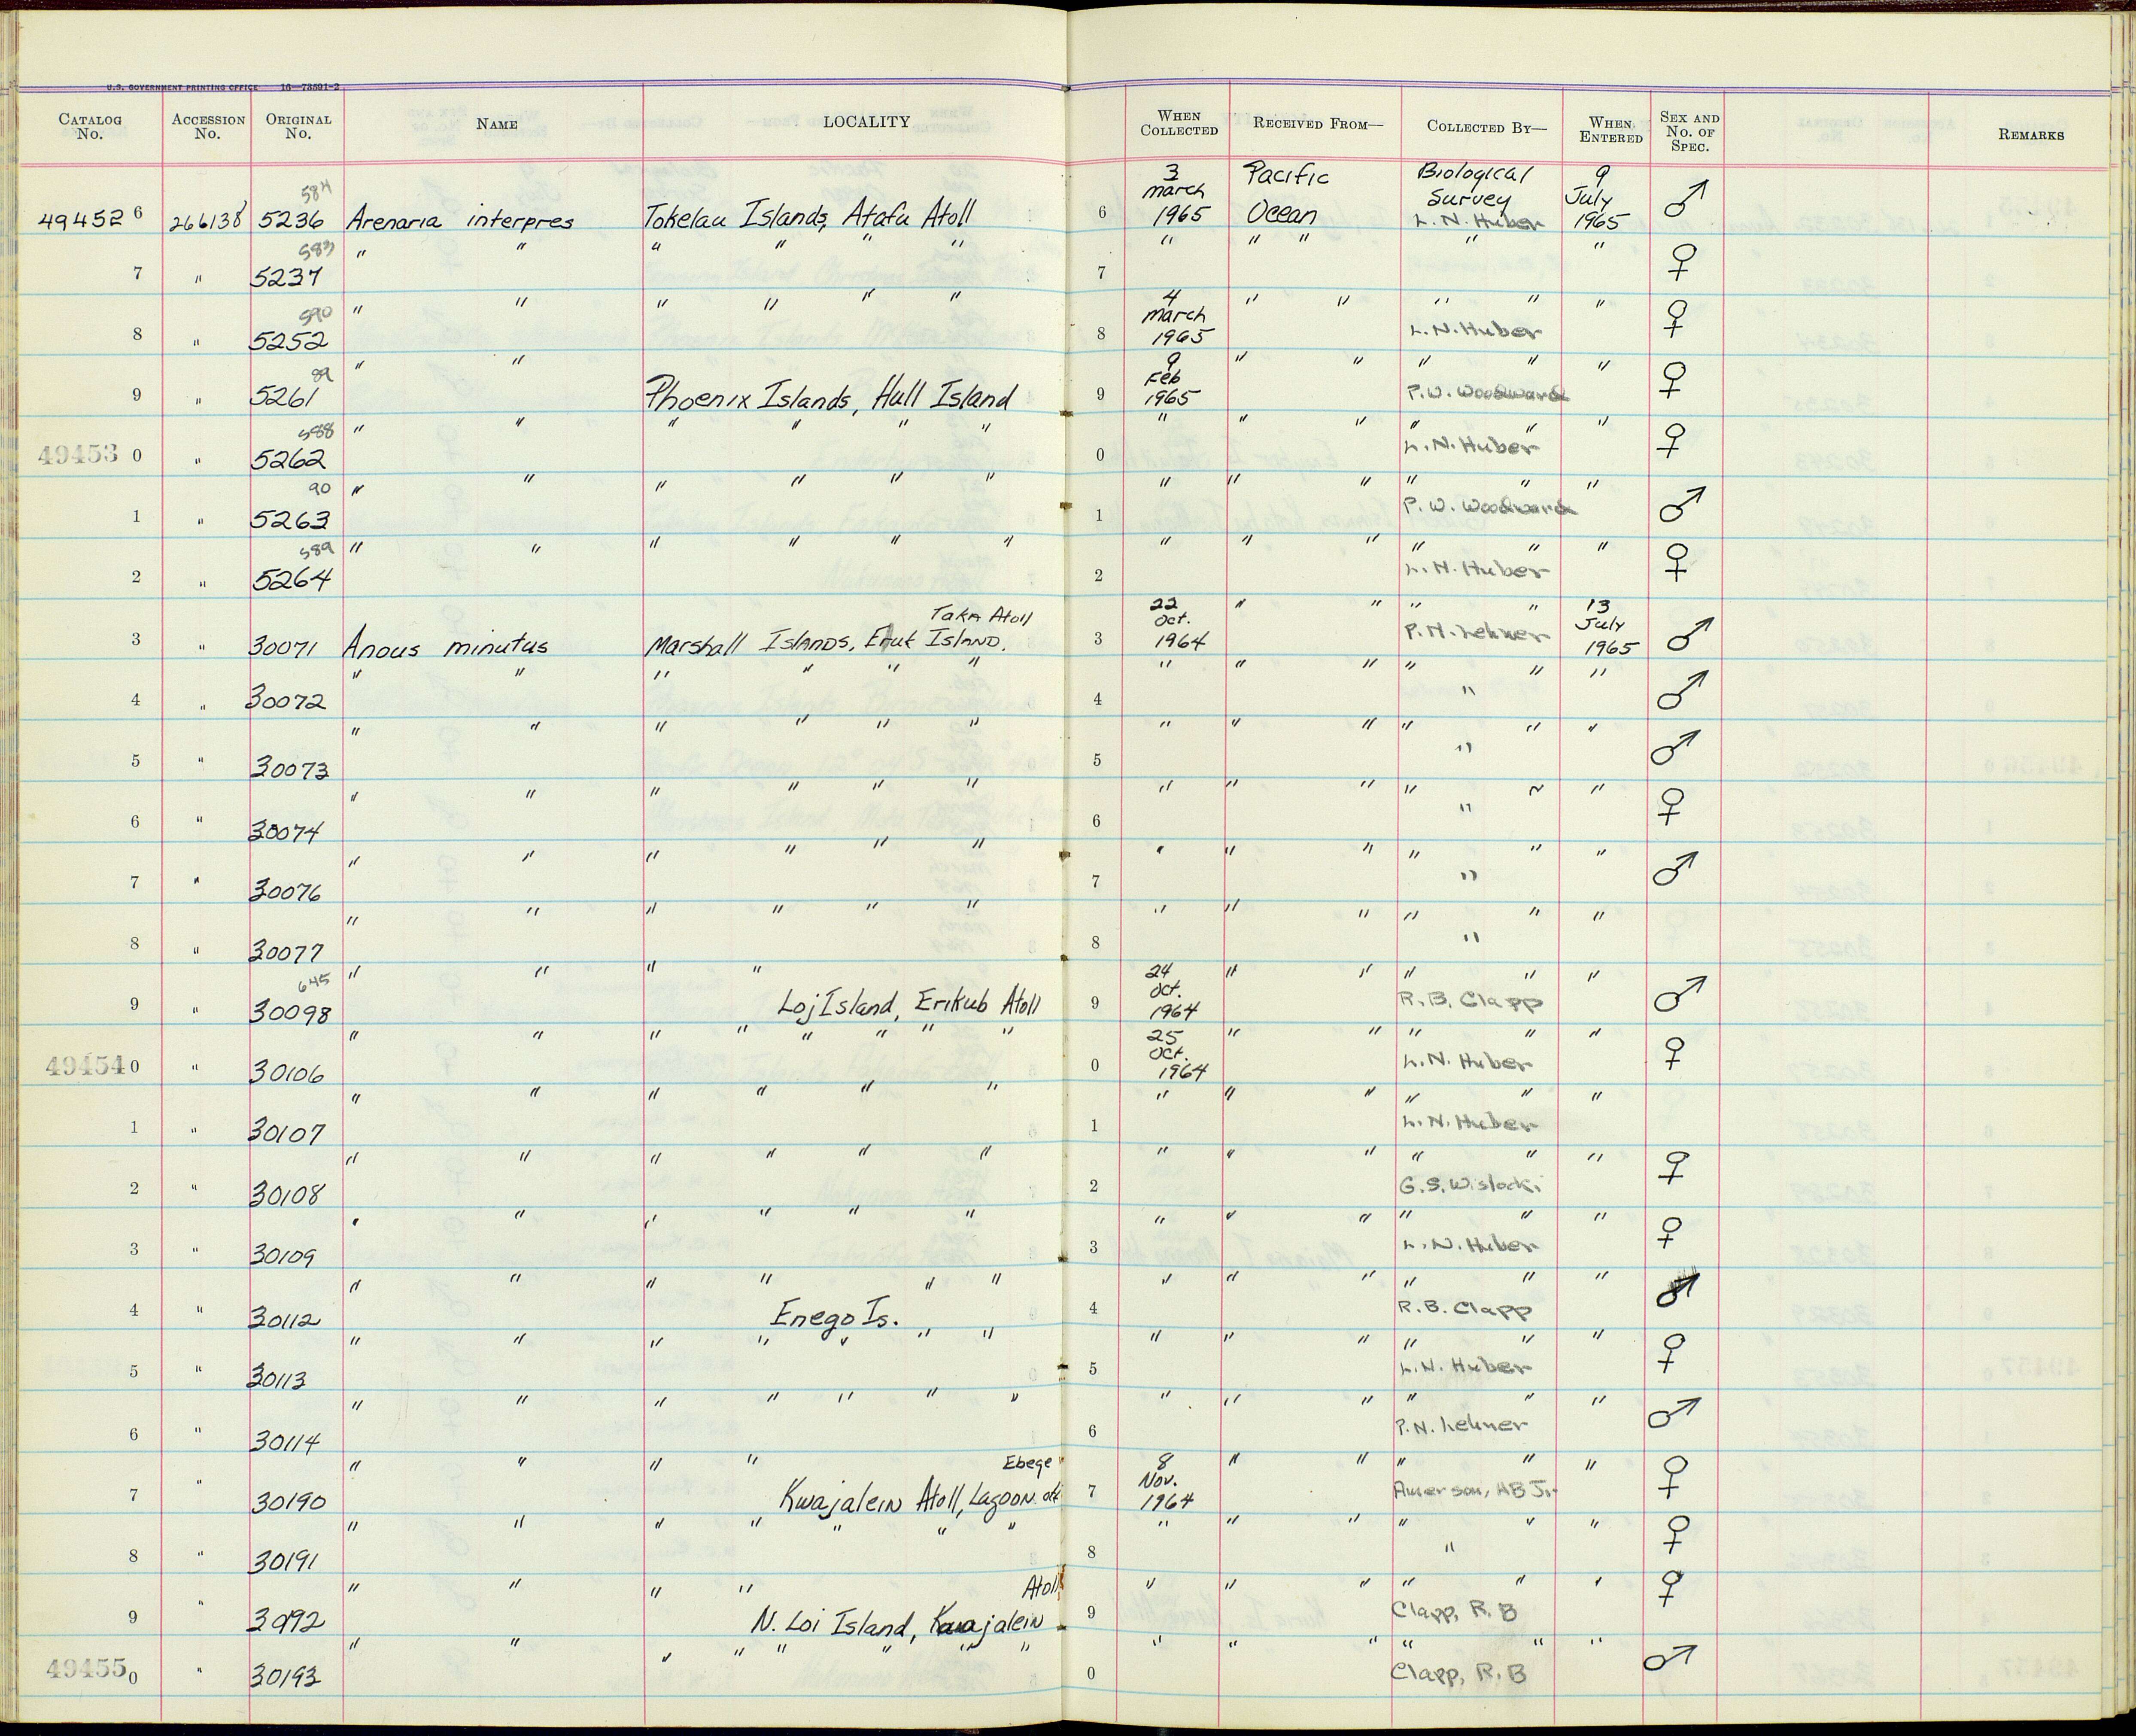 U.S. GOVERNMENT PRINTING OFFICE 16—73591-2
CATALOG No. ACCESSION No. ORIGINAL No. NAME LOCALITY WHEN COLLECTED RECEIVED FROM— COLLECTED BY— WHEN ENTERED SEX AND No. OF SPEC. REMARKS
584 3 Pacific Biological 9
march Survey July
49452 6 266138 5236 Arenaria interpres Tokelau Islands, Atafu Atoll 6 1965 Ocean L.N. Huber 1965 ♂
583 " " " " " " " " " " "
7 " 5237 7 ♀
590 " " " " " " 4 " " " " "
march
8 " 5252 8 1965 L.N. Huber ♀
89 " " 9 " " " " "
Feb
9 " 5261 Phoenix Islands, Hull Island 9 1965 P.W. Woodward ♀
588 " " " " " " " " " " " "
49453 0 " 5262 0 L.N. Huber ♀
90 " " " " " " " " " " " "
1 " 5263 1 P.W. Woodward ♂
589 " " " " " " " " " " " "
2 " 5264 2 L.N. Huber ♀
Taka Atoll 22 " " " " 13
Oct. July
3 " 30071 Anous minutus Marshall Islands, Eluk Island. 3 1964 P.N. Lehner 1965 ♂
" " " " " " " " " " " "
4 " 30072 4 " ♂
" " " " " " " " " " " "
5 " 30073 5 " ♂
" " " " " " " " " " " "
6 " 30074 6 " ♀
" " " " " " " " " " " "
7 " 30076 7 " ♂
" " " " " " " " " " " "
8 " 30077 8 "
645 " " " " 24 " " " " "
Oct.
9 " 30098 Loj Island, Erikub Atoll 9 1964 R.B. Clapp ♂
" " " " " " " " 25 " " " " "
Oct.
49454 0 " 30106 0 1964 L.N. Huber ♀
" " " " " " " " " " " "
1 " 30107 1 L.N. Huber
" " " " " " " " " " " "
2 " 30108 2 G.S. Wislocki ♀
" " " " " " " " " " " "
3 " 30109 3 L.N. Huber ♀
" " " " " " " " " " " "
4 " 30112 Enego Is. 4 R.B. Clapp ♂
" " " " " " " " " " " " "
5 " 30113 5 L.N. Huber ♀
" " " " " " " " " " " " "
6 " 30114 6 P.N. Lehner ♂
" " " " Ebege 8 " " " " "
Nov.
7 " 30190 Kwajalein Atoll, Lagoon off 7 1964 Amerson, AB Jr. ♀
" " " " " " " " " " " " "
8 " 30191 8 " ♀
" " " " Atoll " " " " " "
9 " 30192 N. Loi Island, Kwajalein 9 Clapp, R.B ♀
" " " " " " " " " " " " " "
49455 0 " 30193 0 Clapp, R.B ♂